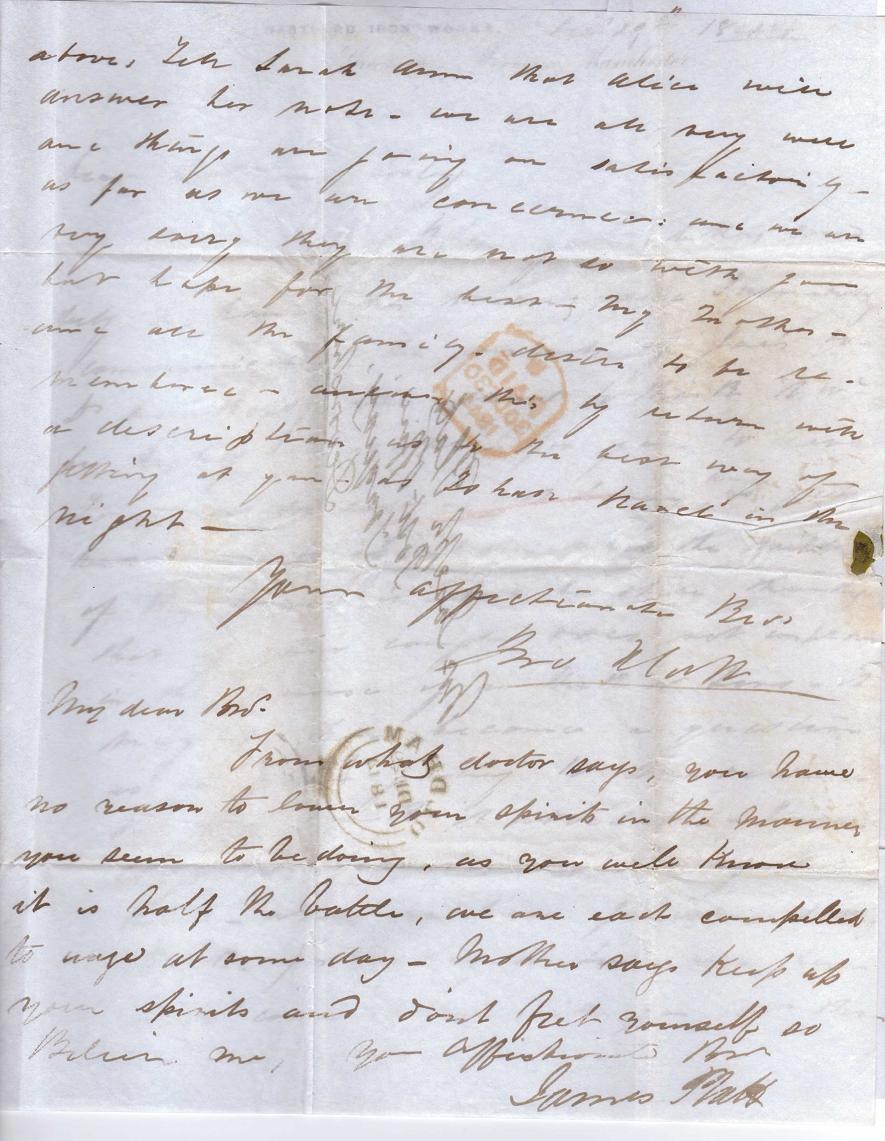 above, Tell Sarah Ann that Alice will
answer her note - we are all very well
and things are going on satisfactory -
as far as we are concerned: and we are
very sorry they are not so with you
but hope for the best - My Mother -
and all the family. desire to be re-
membered - answer this by return with
a description as to the best way of
getting at you as to have travel in the
night —
Your affectionate Bro.
Jno Platt
My dear Bro.
From what doctor says, you have
no reason to lower your spirits in the manner
you seem to be doing, as you well know
it is half the battle, we are each compelled
to wage at some day - Mother says Keep up
your spirits and don't fret yourself so
Believe me, yr Affectionate Bro
James Platt